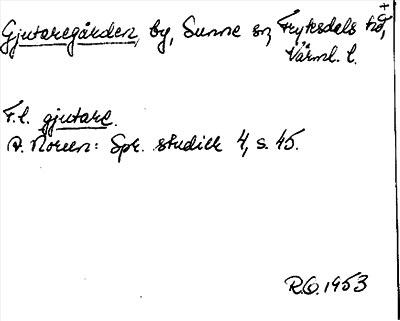 Gjutaregården, by, Sunne sn, Fryksdals hd,
Värml. l.
F.l. gjutare.
A. Noreen: Spr. studier 4, s. 45.
R.O. 1953